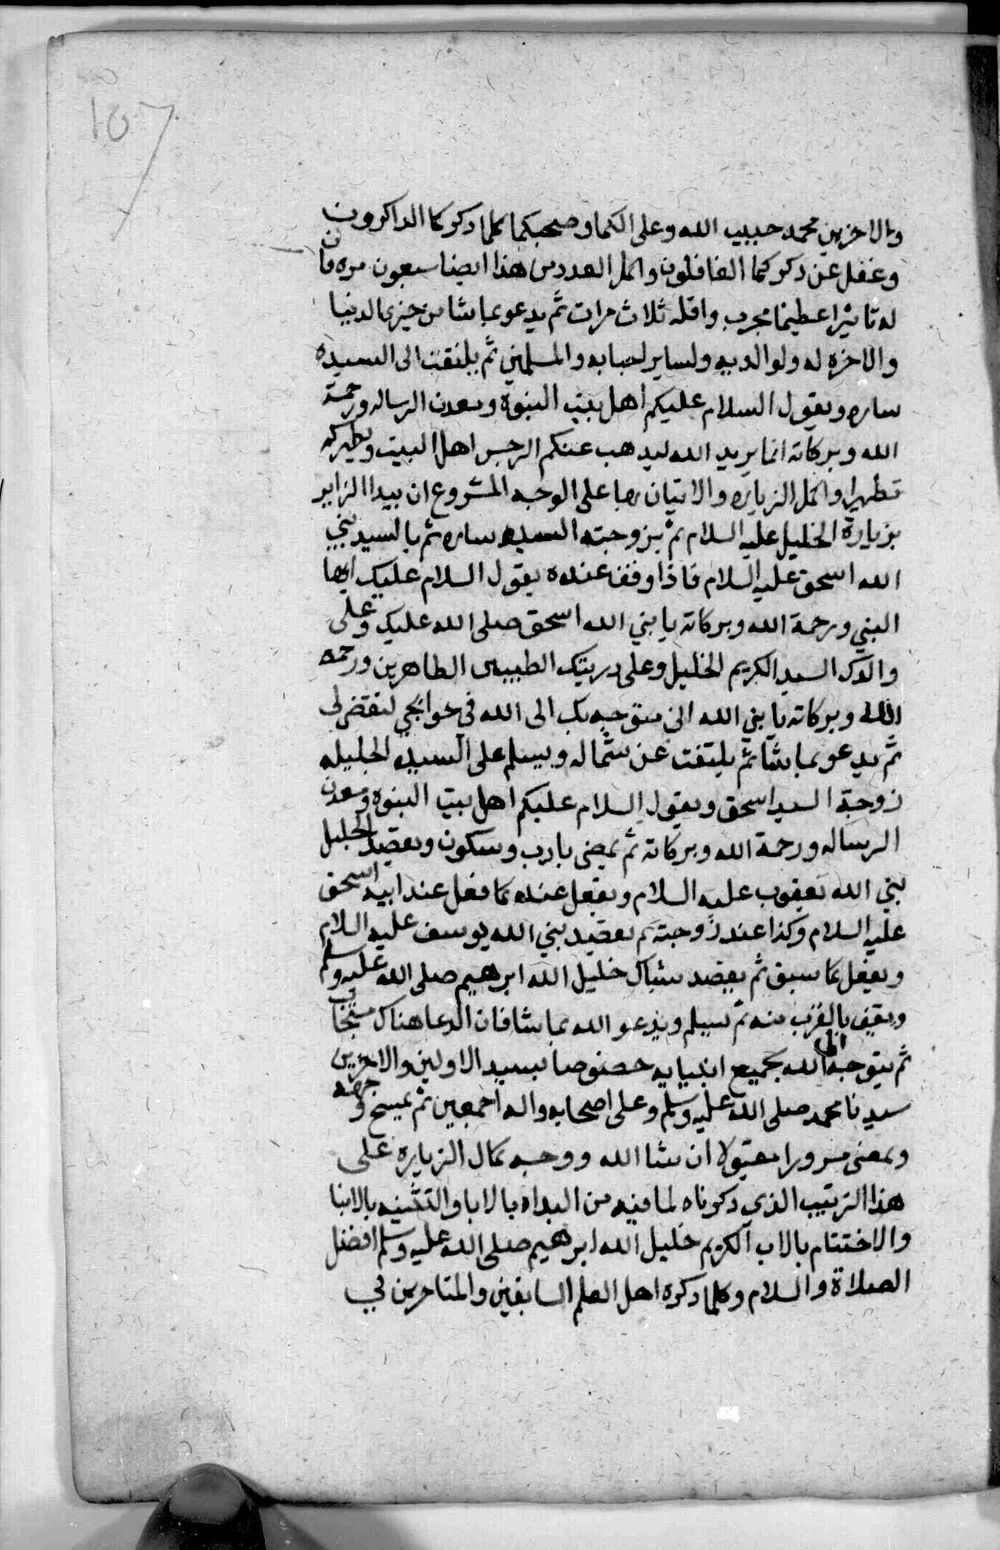 157
والاخرين محمد حبيب الله وعلى الكما وصحبكما كلما ذكركما الذاكرون
وغفل عن ذكركما الغافلون واكمل العدد من هذا ايضا سبعون مره فان
له تاثيرا عظيما مجرب واقله ثلاث مرات ثم يدعو بما شا من خيري الدنيا
والاخره له ولوالديه ولساير احبابه والمسلمين ثم يلتفت الى السيده
ساره ويقول السلام عليكم اهل بيت النبوة ومعدن الرساله ورحمة
الله وبركاته انما يريد الله ليذهب عنكم الرجس اهل البيت ويطهركم
تطهيرا واكمل الزياره والاتيان بها على الوجه المشروع ان يبدا الزاير
بزيارة الخليل عليه السلام ثم بزوجته السيده ساره ثم بالسيد نبي
الله اسحق عليه السلام فاذا وقف عنده يقول السلام عليك ايها
النبي ورحمة الله وبركاته يا نبي الله اسحق صلى الله عليك وعلى
والدك السيد الكريم الخليل وعلى ذريتك الطيبين الطاهرين ورحمة
الله وبركاته يا نبي الله اني متوجه بك الى الله في حوايجي لتقضى لي
ثم يدعو بما شا ثم يلتفت عن شماله ويسلم على السيده الجليله
زوجة السيد اسحق ويقول السلام عليكم اهل بيت النبوه ومعدن
الرساله ورحمة الله وبركاته ثم يمضي بادب وسكون ويقصد الجليل
نبي الله يعقوب عليه السلام ويفعل عنده كما فعل عند ابيه اسحق
عليه السلام وكذا عند زوجته ثم يقصد نبي الله يوسف عليه السلام
ويفعل كما سبق ثم يقصد شباك خليل الله ابرهيم صلى الله عليه وسلم
ويقف بالقرب منه ثم يسلم ويدعو الله بما شا فان الدعا هناك مستجاب
ثم يتوجه الى الله بجميع انبيايه خصوصا بسيد الاولين والاخرين
سيدنا محمد صلى الله عليه وسلم وعلى اصحابه واله اجمعين ثم يمسح وجهه
ويمضى مسرورا مقبولا ان شا الله ووجه كمال الزياره على
هذا الترتيب الذي ذكرناه لما فيه من البداه بالابا والتثنيه بالابنا
والاختتام بالاب الكريم خليل الله ابرهيم صلى الله عليه وسلم افضل
الصلاة والسلام وكلما ذكره اهل العلم السابقين والمتاخرين في